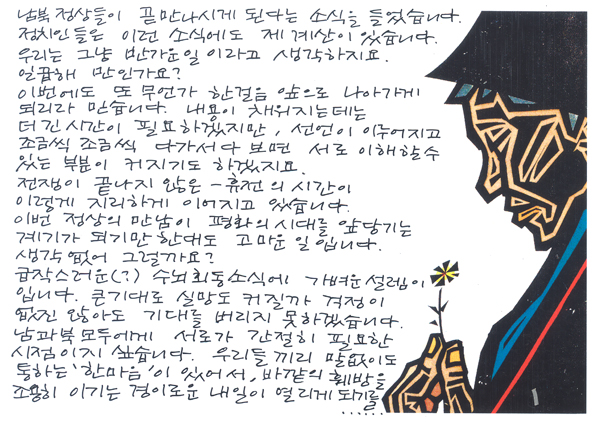 남북 정상들이 곧 만나시게 된다는 소식을 들었습니다.
정치인들은 이런 소식에도 제 계산이 있습니다.
우리는 그냥 반가운 일이라고 생각하지요.
일곱해 만인가요?
이번에도 또 무언가 한걸음 앞으로 나아가게
되리라 믿습니다. 내용이 채워지는데는
더 긴 시간이 필요하겠지만, 선언이 이루어지고
조금씩 조금씩 다가서다 보면 서로 이해할 수
있는 부분이 커지기도 하겠지요.
전쟁이 끝나지 않은 - 휴전의 시간이
이렇게 지리하게 이어지고 있습니다.
이번 정상의 만남이 평화의 시대를 앞당기는
계기가 되기만 한대도 고마운 일입니다.
생각 없어 그럴까요?
급작스러운(?) 수뇌회동소식에 가벼운 설렘이
입니다. 큰 기대로 실망도 커질까 걱정이
없진 않아도 기대를 버리지 못하겠습니다.
남과 북 모두에게 서로가 간절히 필요한
시점이지 싶습니다. 우리들끼리 말없이도
통하는 '한마음'이 있어서, 바깥의 훼방을
조용히 이기는 경이로운 내일이 열리게 되기를
......